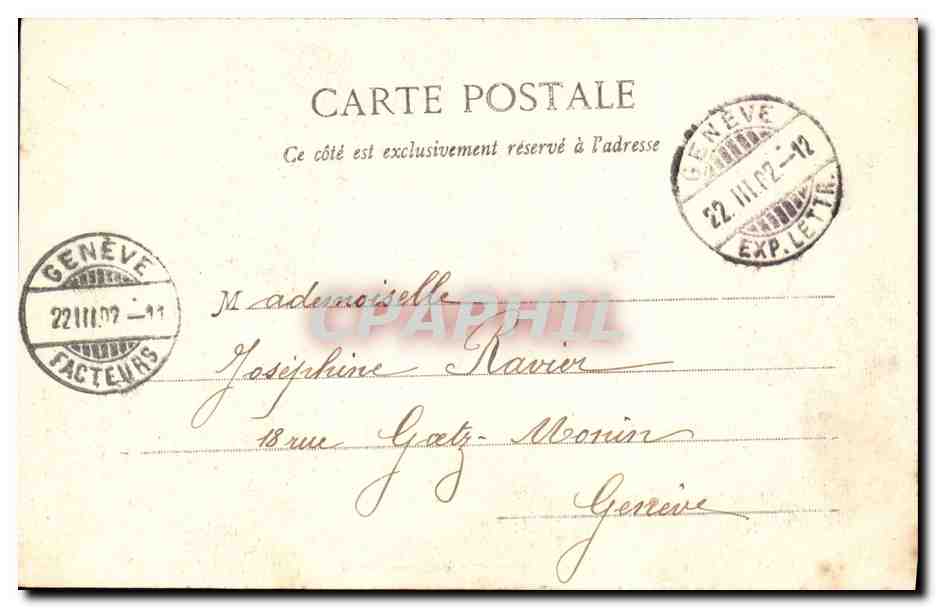 CARTE POSTALE
Ce côté est exclusivement réservé à l'adresse
GENÈVE
22.III.02.-12
EXP. LETTR.
GENÈVE
22 III.02.-11
FACTEURS
Mademoiselle
CPAPHIL
Joséphine Ravier
18 rue Gœtz-Monin
Genève